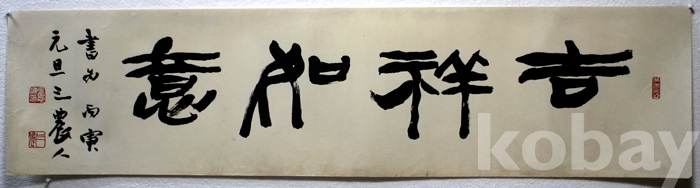 吉祥如意
書於丙寅
元旦三農人
kobay